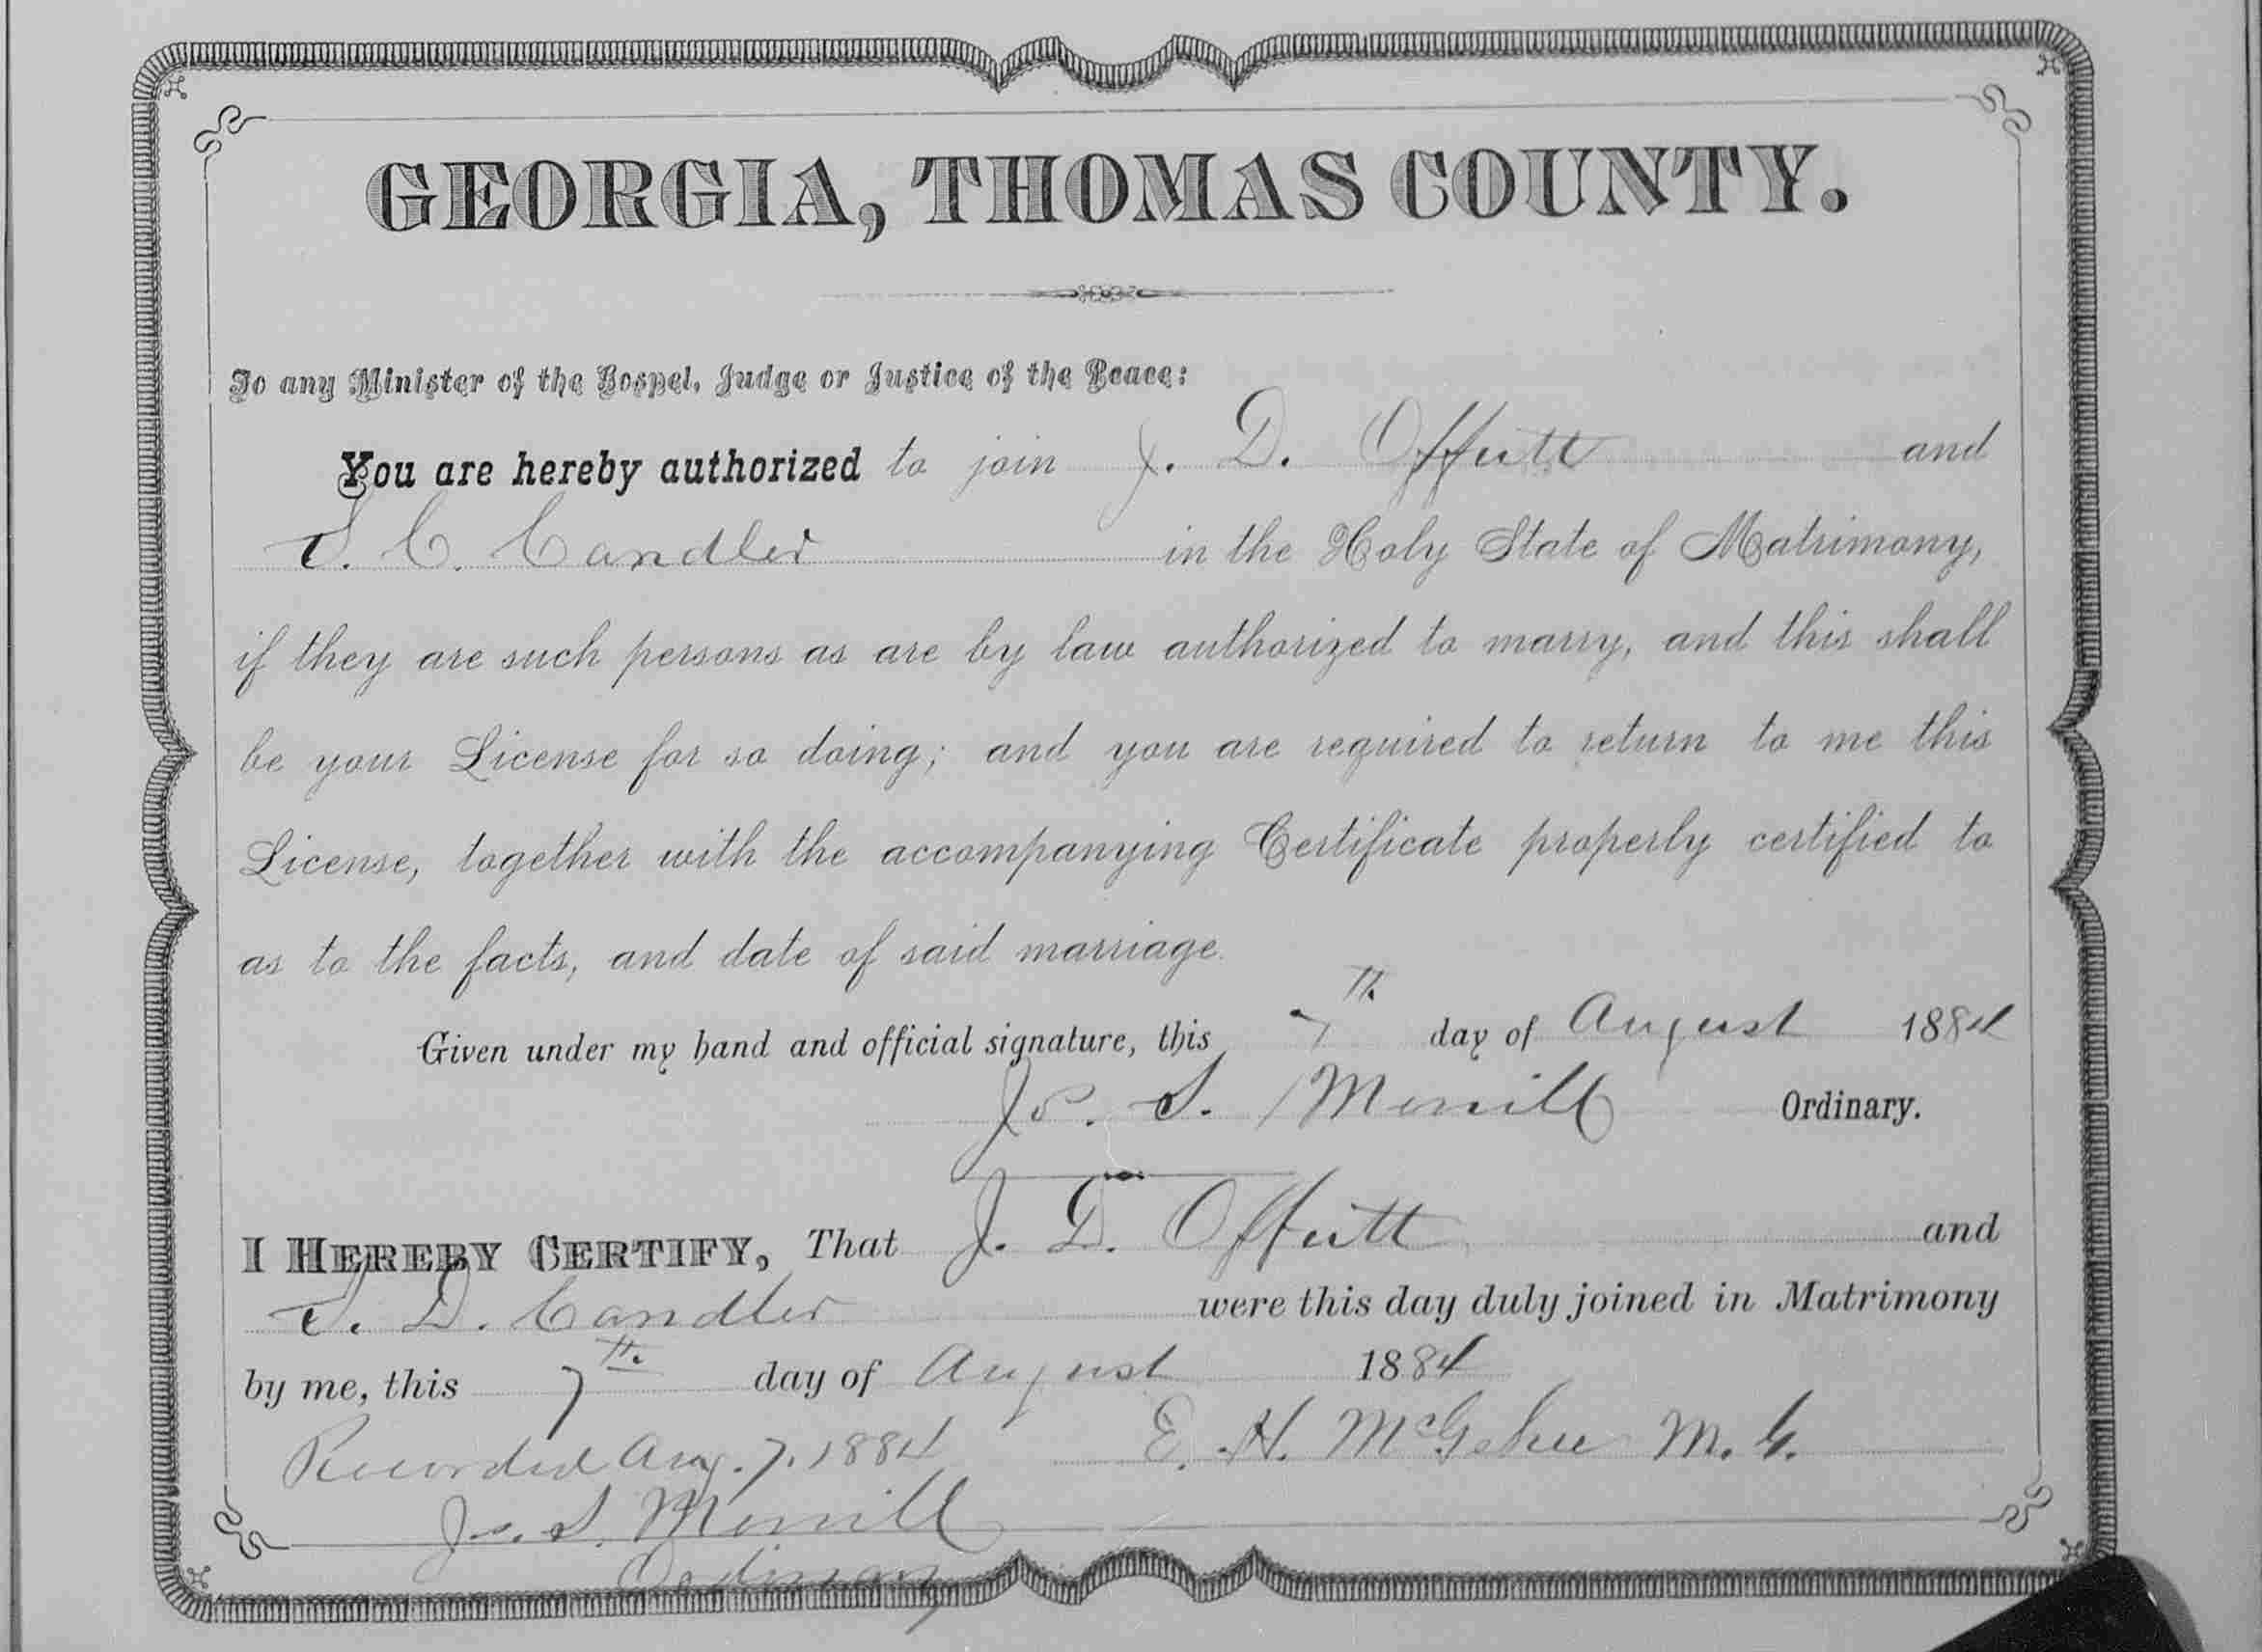 GEORGIA, THOMAS COUNTY.
To any Minister of the Gospel, Judge or Justice of the Peace:
You are hereby authorized to join J. D. Offutt and
S. C. Candler in the Holy State of Matrimony,
if they are such persons as are by law authorized to marry, and this shall
be your License for so doing; and you are required to return to me this
License, together with the accompanying Certificate properly certified to
as to the facts, and date of said marriage.
Given under my hand and official signature, this 7th day of August 1884
Jo. S. Merrill Ordinary.
I HEREBY CERTIFY, That J. D. Offutt and
S. D. Candler were this day duly joined in Matrimony
by me, this 7th day of August 1884
Recorded Aug. 7. 1884 E. H. McGehee M. G.
Jo. S. Merrill
Ordinary